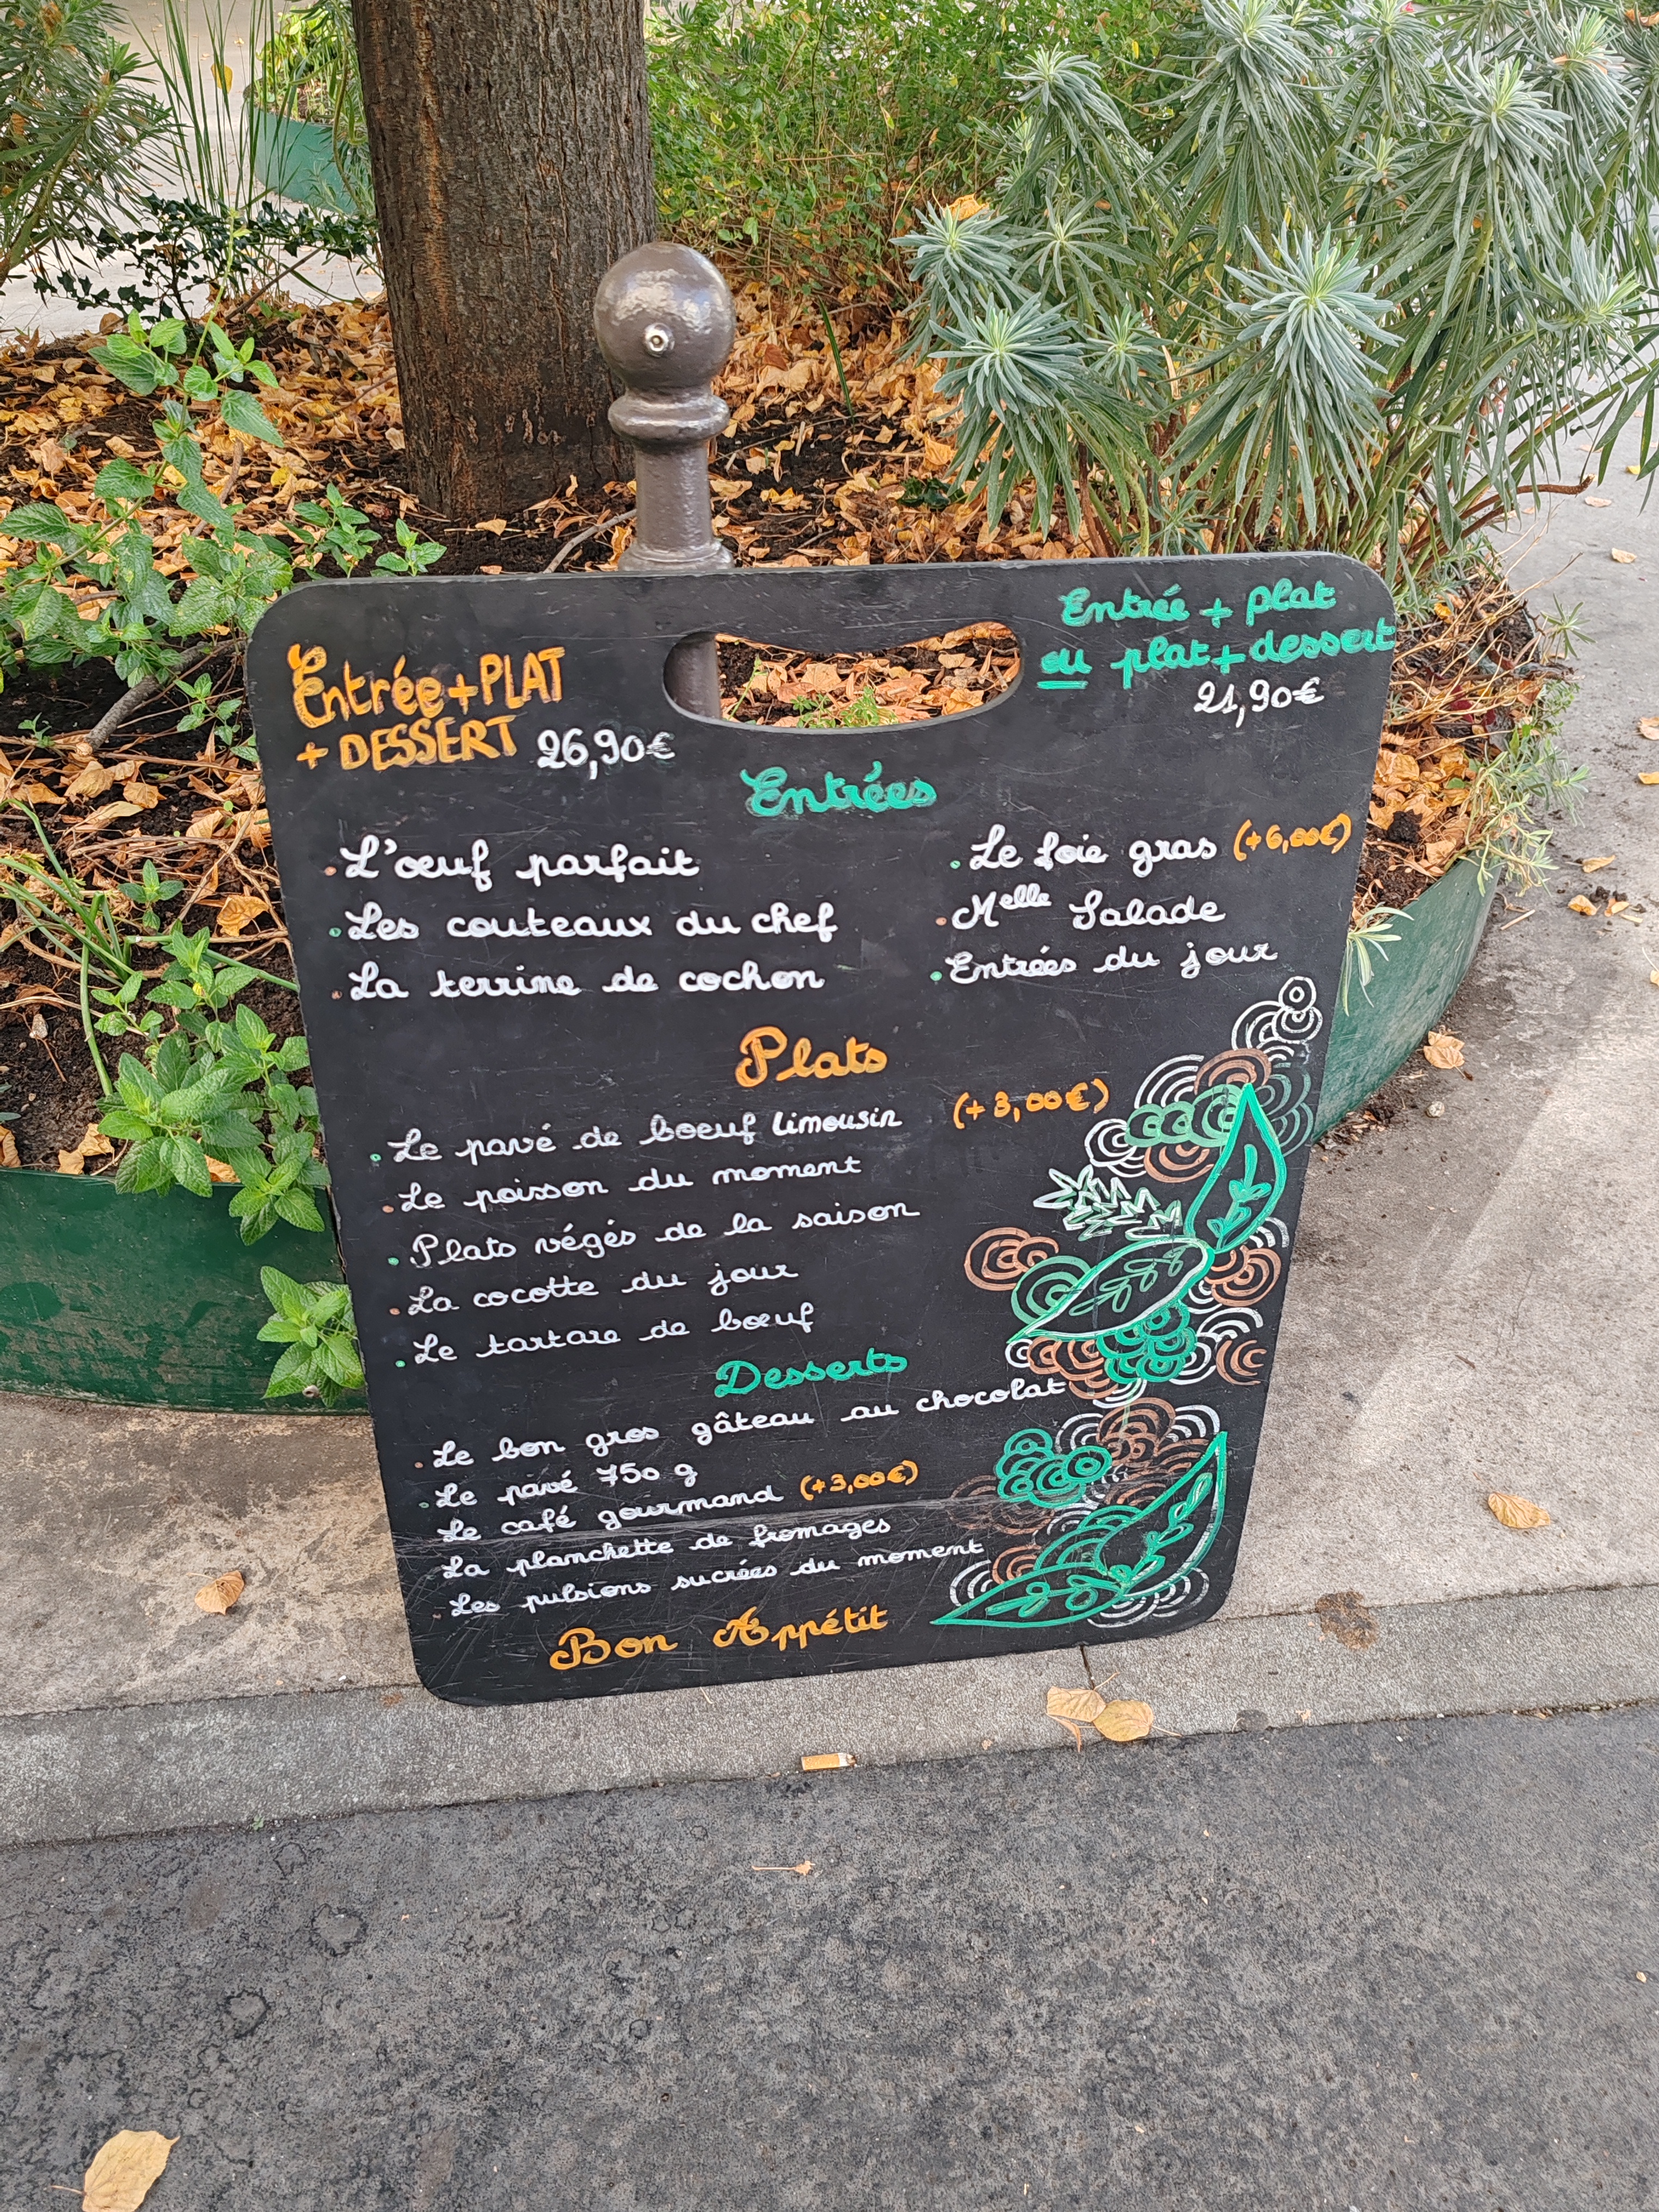 Entrée + PLAT
+ DESSERT 26,90€
Entrée + plat
ou plat + dessert
21,90€
Entrées
. L'œuf parfait
. Les couteaux du chef
. La terrine de cochon
. Le foie gras (+6,00€)
. Melle Salade
. Entrées du jour
Plats
. Le pavé de boeuf limousin (+3,00€)
. Le poisson du moment
. Plats végés de la saison
. La cocotte du jour
. Le tartare de bœuf
Desserts
. Le bon gros gâteau au chocolat
. Le pavé 750 g
Le café gourmand (+3,00€)
La planchette de fromages
. Les pulsions sucrées du moment
Bon Appétit